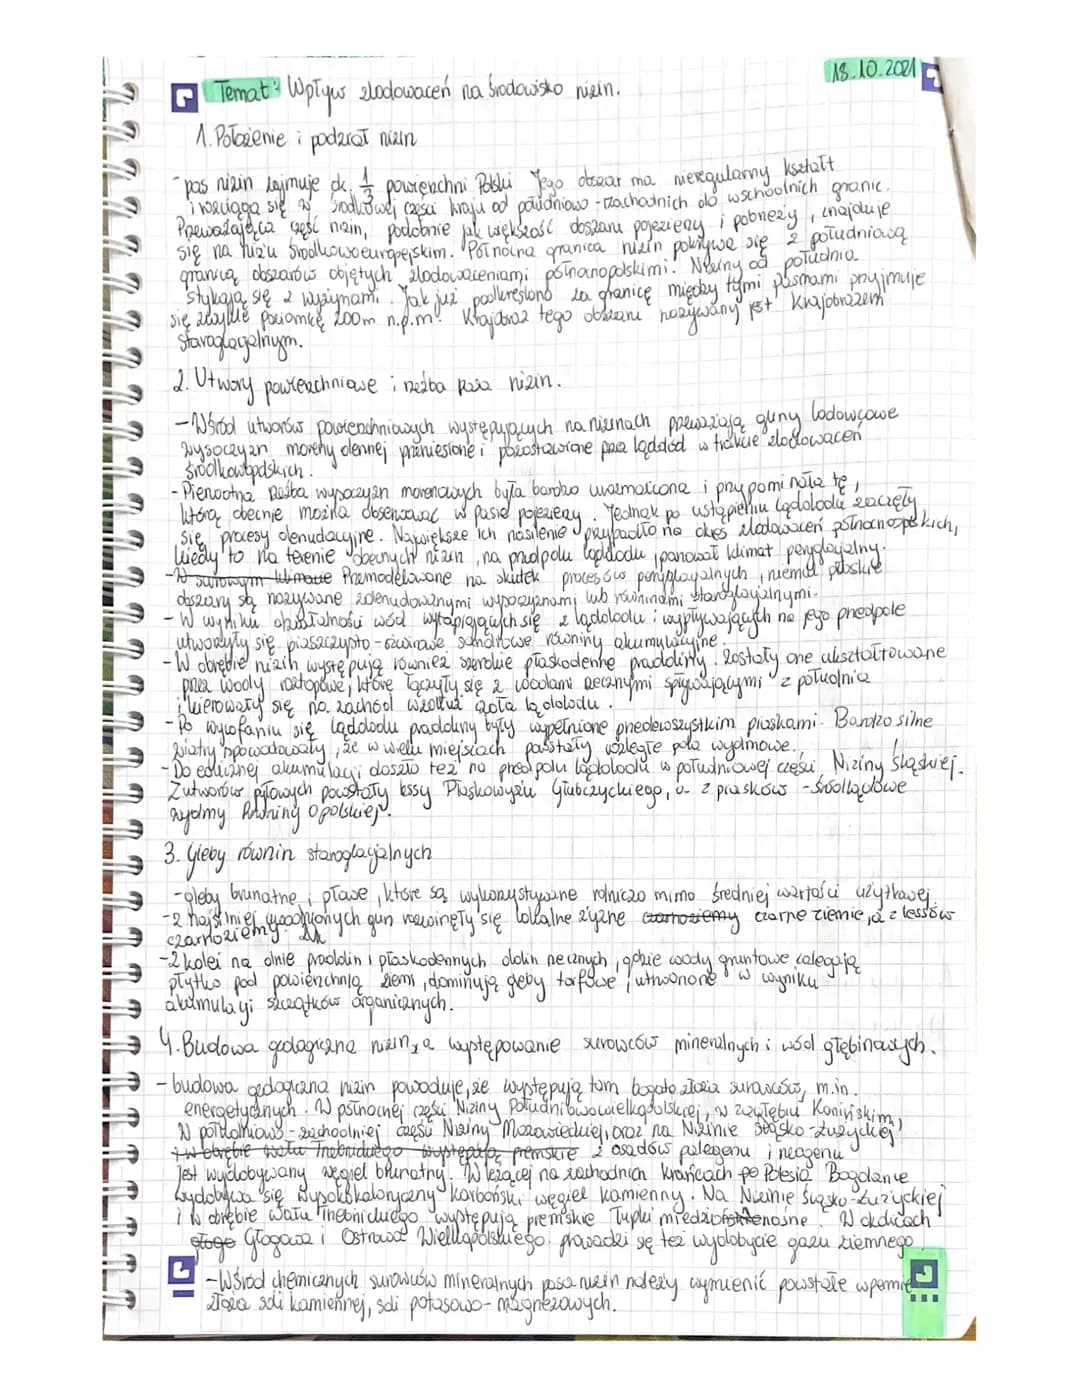 18.10.2021
Temat: Wpływ zlodowaceń na środowisko nizin.
1. Położenie i podział nizin
- pas nizin zajmuje ok. 1/3 powierzchni Polski Jego obszar ma nieregularny kształt
i rozciąga się w środkowej części kraju od południowo-zachodnich do wschodnich granic.
Przeważająca część nizin, podobnie jak większość obszaru pojezierzy i pobrzeży, znajduje
się na Niżu Środkowoeuropejskim. Północna granica nizin pokrywa się z południową
granicą obszarów objętych zlodowaceniami północnopolskimi. Niziny od południa
stykają się z wyżynami. Jak już podkreślono za granicę między tymi pasmami przyjmuje
się zwykle poziomicę 200m n.p.m. Krajobraz tego obszaru nazywany jest krajobrazem
staroglacjalnym.
2. Utwory powierzchniowe i rzeźba pasa nizin.
- Wśród utworów powierzchniowych występujących na nizinach przeważają gliny lodowcowe
wysoczyzn moreny dennej przeniesione i pozostawione przez lądolód w trakcie zlodowaceń
środkowopolskich.
- Pierwotna rzeźba wysoczyzn morenowych była bardzo urozmaicona i przypominała tę,
którą obecnie można obserwować w pasie pojezierzy. Jednak po ustąpieniu lądolodu zaczęły
się procesy denudacyjne. Największe ich nasilenie przypadło na okres zlodowaceń północnopolskich,
kiedy to na terenie obecnych nizin, na przedpolu lądolodu, panował klimat peryglacjalny.
- W surowym klimacie Przemodelowane na skutek procesów peryglacjalnych, niemal płaskie
obszary są nazywane zdenudowanymi wysoczyznami lub równinami staroglacjalnymi.
- W wyniku działalności wód wytapiających się z lądolodu i wypływających na jego przedpole
utworzyły się piaszczysto-żwirowe sandrowe równiny akumulacyjne.
- W obrębie nizin występują również szerokie płaskodenne pradoliny. Zostały one ukształtowane
przez wody roztopowe, które łączyły się z wodami rzecznymi spływającymi z południa
i kierowały się na zachód wzdłuż czoła lądolodu.
- Po wycofaniu się lądolodu pradoliny były wypełnione przedewszystkim piaskami. Bardzo silne
wiatry spowodowały, że w wielu miejscach powstały rozległe pola wydmowe.
- Do eolicznej akumulacji doszło też na przedpolu lądolodu w południowej części Niziny Śląskiej.
Z utworów pyłowych powstały lessy Płaskowyżu Głubczyckiego, a z piasków - śródlądowe
wydmy Równiny Opolskiej.
3. Gleby równin staroglacjalnych
- gleby brunatne i płowe, które są wykorzystywane rolniczo mimo średniej wartości użytkowej.
- z najsilniej uwodnionych glin rozwinęły się lokalne żyzne czarnoziemy czarne ziemie, a z lessów
czarnoziemy.
- Z kolei na dnie pradolin i płaskodennych dolin rzecznych, gdzie wody gruntowe zalegają
płytko pod powierzchnią ziemi, dominują gleby torfowe, utworzone w wyniku
akumulacji szczątków organicznych.
4. Budowa geologiczna nizin, a występowanie surowców mineralnych i wód głębinowych.
- budowa geologiczna nizin powoduje, że występują tam bogate złoża surowców, m.in.
energetycznych. W północnej części Niziny Południowowielkopolskiej, w zagłębiu Konińskim,
w południowo-zachodniej części Niziny Mazowieckiej, oraz na Nizinie Śląsko-Łużyckiej
i w obrębie wału Trzebnickiego występują premskie z osadów paleogenu i neogenu
jest wydobywany węgiel brunatny. W leżącej na zachodnich krańcach po Polesia Bogdance
wydobywa się wysokokaloryczny karboński węgiel kamienny. Na Nizinie Śląsko-Łużyckiej
i w obrębie Wału Trzebnickiego występują premskie łupki miedzionośne. W okolicach
głogo Głogowa i Ostrowa Wielkopolskiego prowadzi się też wydobycie gazu ziemnego
- Wśród chemicznych surowców mineralnych pasa nizin należy wymienić powstałe w permie
złoża soli kamiennej, soli potasowo-magnezowych.